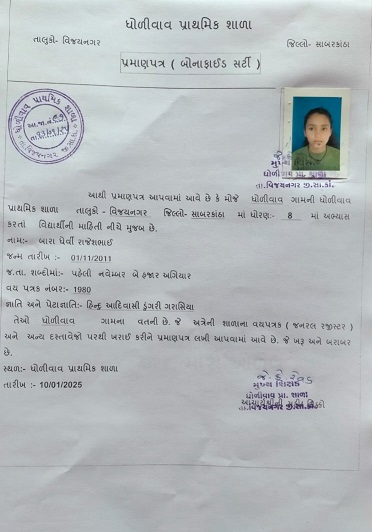 ધોળીવાવ પ્રાથમિક શાળા
તાલુકો- વિજયનગર જિલ્લો- સાબરકાંઠા
પ્રમાણપત્ર ( બોનાફાઈડ સર્ટી )
ધોળીવાવ પ્રાથમિક શાળા
મુખ્ય શિક્ષક
ધોળીવાવ પ્રા. શાળા
તા.વિજયનગર જી.સા.કાં.
આથી પ્રમાણપત્ર આપવામાં આવે છે કે મોજે ધોળીવાવ ગામની ધોળીવાવ
પ્રાથમિક શાળા તાલુકો - વિજયનગર જિલ્લો- સાબરકાંઠા માં ધોરણ:- 8 માં અભ્યાસ
કરતાં વિદ્યાર્થીની માહિતી નીચે મુજબ છે.
નામ:- બારા ધેર્વી રાજેશભાઈ
જન્મ તારીખ :- 01/11/2011
જ.તા. શબ્દોમાં:- પહેલી નવેમ્બર બે હજાર અગિયાર
વય પત્રક નંબર:- 1980
જ્ઞાતિ અને પેટાજ્ઞાતિ:- હિન્દુ આદિવાસી ડુંગરી ગરાસિયા
તેઓ ધોળીવાવ ગામના વતની છે. જે અત્રેની શાળાના વયપત્રક ( જનરલ રજીસ્ટર )
અને અન્ય દસ્તાવેજો પરથી ખરાઈ કરીને પ્રમાણપત્ર લખી આપવામાં આવે છે. જે ખરૂ અને બરાબર
છે.
સ્થળ:- ધોળીવાવ પ્રાથમિક શાળા
તારીખ :- 10/01/2025
મુખ્ય શિક્ષક
ધોળીવાવ પ્રા. શાળા
તા.વિજયનગર જી.સા.કાં.